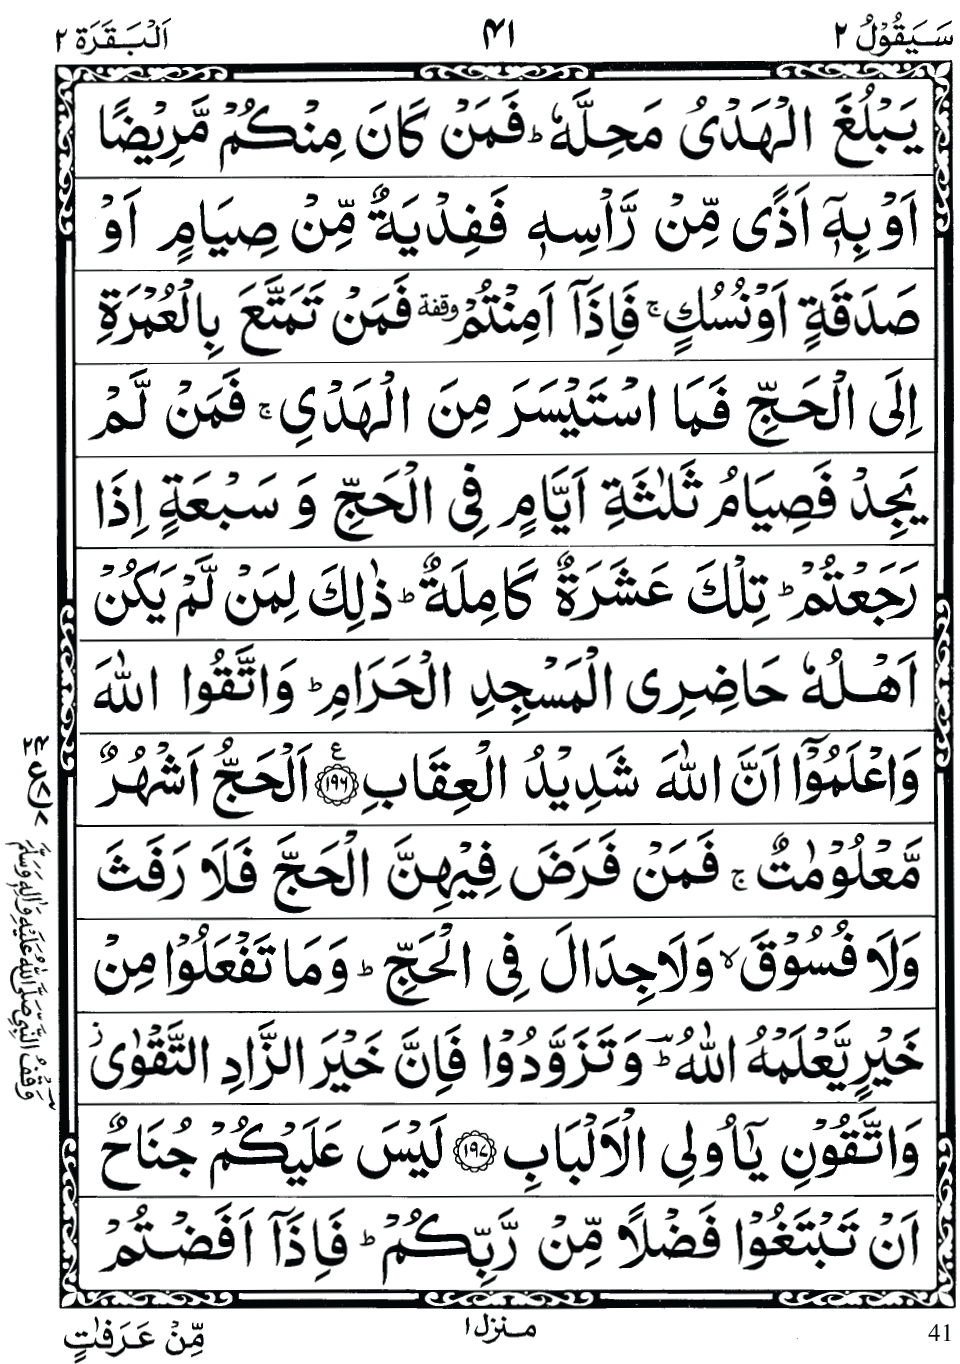 سَيَقُوْلُ ٢
٤١
اَلْبَقَرَة ٢
يَبْلُغَ الْهَدْىُ مَحِلَّهٗ ؕ فَمَنْ كَانَ مِنْكُمْ مَّرِيْضًا
اَوْ بِهٖۤ اَذًى مِّنْ رَّاْسِهٖ فَفِدْيَةٌ مِّنْ صِيَامٍ اَوْ
صَدَقَةٍ اَوْ نُسُكٍ ۚ فَاِذَاۤ اَمِنْتُمْ وقفة فَمَنْ تَمَتَّعَ بِالْعُمْرَةِ
اِلَى الْحَجِّ فَمَا اسْتَيْسَرَ مِنَ الْهَدْىِ ۚ فَمَنْ لَّمْ
يَجِدْ فَصِيَامُ ثَلٰثَةِ اَيَّامٍ فِى الْحَجِّ وَ سَبْعَةٍ اِذَا
رَجَعْتُمْ ؕ تِلْكَ عَشَرَةٌ كَامِلَةٌ ؕ ذٰلِكَ لِمَنْ لَّمْ يَكُنْ
اَهْلُهٗ حَاضِرِى الْمَسْجِدِ الْحَرَامِ ؕ وَاتَّقُوا اللّٰهَ
وَاعْلَمُوْۤا اَنَّ اللّٰهَ شَدِيْدُ الْعِقَابِ ﴿١٩٦﴾ ع اَلْحَجُّ اَشْهُرٌ
مَّعْلُوْمٰتٌ ۚ فَمَنْ فَرَضَ فِيْهِنَّ الْحَجَّ فَلَا رَفَثَ
وَلَا فُسُوْقَ ۙ وَلَا جِدَالَ فِى الْحَجِّ ؕ وَمَا تَفْعَلُوْا مِنْ
خَيْرٍ يَّعْلَمْهُ اللّٰهُ ؕؔ وَتَزَوَّدُوْا فَاِنَّ خَيْرَ الزَّادِ التَّقْوٰى ز
وَاتَّقُوْنِ يٰۤاُولِى الْاَلْبَابِ ﴿١٩٧﴾ لَيْسَ عَلَيْكُمْ جُنَاحٌ
اَنْ تَبْتَغُوْا فَضْلًا مِّنْ رَّبِّكُمْ ؕ فَاِذَاۤ اَفَضْتُمْ
وَقْفُ النَّبِىِّ صَلَّى اللّٰهُ عَلَيْهِ وَاٰلِهٖ وَسَلَّمَ
مِّنْ عَرَفٰتٍ
منزل ١
41